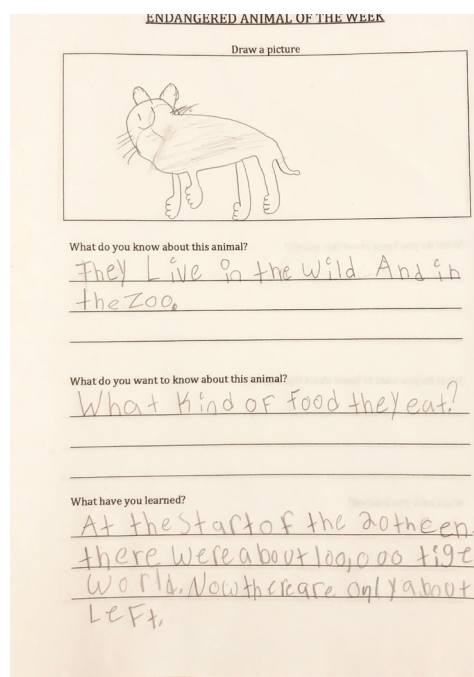 ENDANGERED ANIMAL OF THE WEEK
Draw a picture
What do you know about this animal?
They Live in the wild And in
the Zoo.
What do you want to know about this animal?
What kind of food they eat?
What have you learned?
At the start of the 20th cen
there were about 100,000 tige
world. Now there are only about
Left.